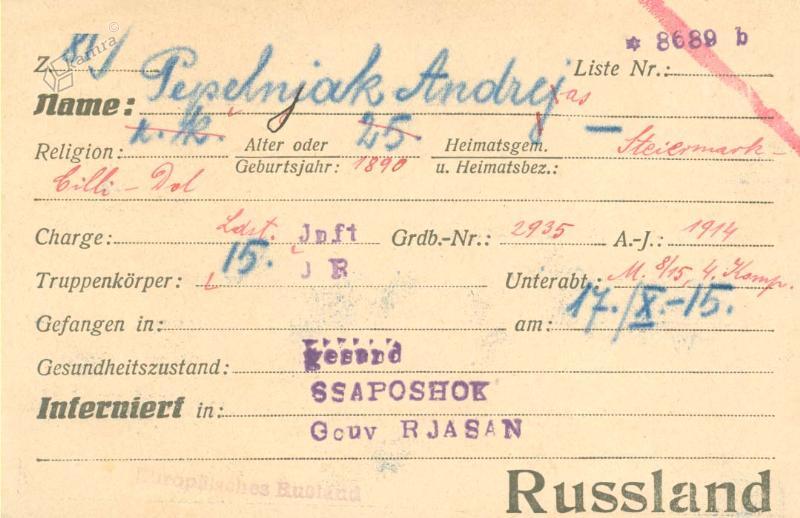 kamra
* 8689 b
Z. 811 Liste Nr.:
Name: Pepelnjak Andrej as
r. k. 25. —
Religion: Alter oder Geburtsjahr: 1890 Heimatsgem. u. Heimatsbez.: Steiermark-
Cilli - Dol
Charge: Ldst. Jnft Grdb.-Nr.: 2935 A.-J.: 1914
Truppenkörper: 15. J R Unterabt.: M. 8/15, 4. Komp.
Gefangen in: am: 17./X.-15.
Gesundheitszustand: gesund
Interniert in: SSAPOSHOK
Gouv RJASAN
Europäisches Rusland
Russland